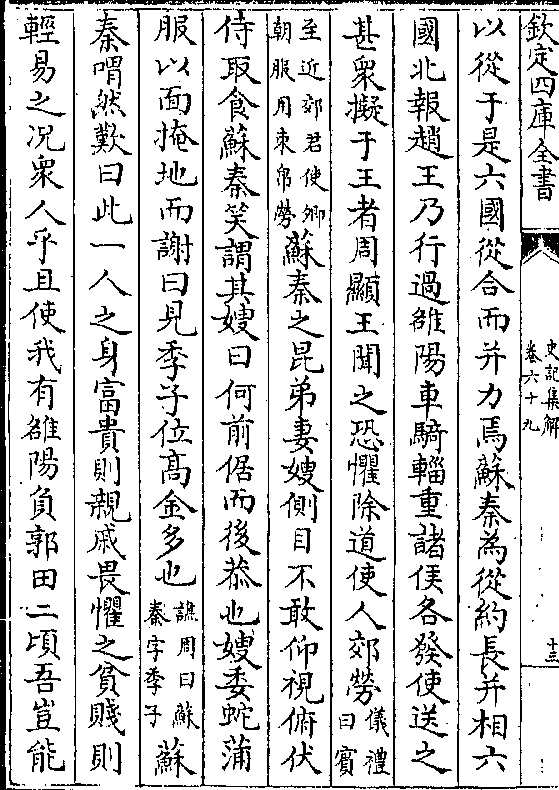 欽定四庫全書
史記集解
卷六十九
十三
以從于是六國從合而并力焉蘇秦為從約長并相六
國北報趙王乃行過雒陽車騎輜重諸侯各發使送之
甚衆擬于王者周顯王聞之恐懼除道使人郊勞儀禮曰賓
至近郊君使卿朝服用束帛勞蘇秦之昆弟妻嫂側目不敢仰視俯伏
侍取食蘇秦笑謂其嫂曰何前倨而後恭也嫂委蛇蒲
服以面掩地而謝曰見季子位髙金多也譙周曰蘇秦字季子蘇
秦喟然歎曰此一人之身富貴則親戚畏懼之貧賤則
輕易之况衆人乎且使我有雒陽負郭田二頃吾豈能